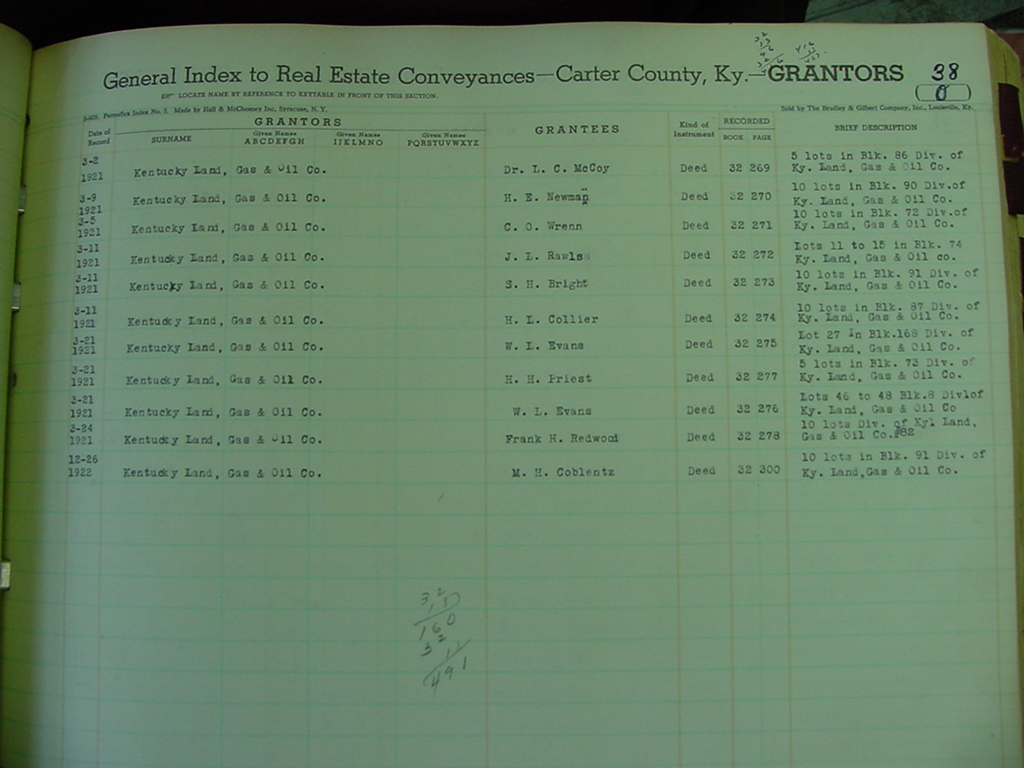 General Index to Real Estate Conveyances—Carter County, Ky.—GRANTORS 38
LOCATE NAME BY REFERENCE TO KEYTABLE IN FRONT OF THIS SECTION. 0
Permaflex Index No. 2. Made by Hall & McChesney Inc, Syracuse, N. Y. Sold by The Bradley & Gilbert Company, Inc., Louisville, Ky.
Date of Record GRANTORS GRANTEES Kind of Instrument RECORDED BRIEF DESCRIPTION
SURNAME Given Names ABCDEFGH Given Names IJKLMNO Given Names PQRSTUVWXYZ BOOK PAGE
3-2 5 lots in Blk. 86 Div. of
1921 Kentucky Land, Gas & Oil Co. Dr. L. C. McCoy Deed 32 269 Ky. Land, Gas & Oil Co.
3-9 10 lots in Blk. 90 Div.of
1921 Kentucky Land, Gas & Oil Co. H. E. Newman Deed 32 270 Ky. Land, Gas & Oil Co.
3-5 10 lots in Blk. 72 Div.of
1921 Kentucky Land, Gas & Oil Co. C. O. Wrenn Deed 32 271 Ky. Land, Gas & Oil Co.
3-11 Lots 11 to 15 in Blk. 74
1921 Kentucky Land, Gas & Oil Co. J. L. Rawls Deed 32 272 Ky. Land, Gas & Oil co.
3-11 10 lots in Blk. 91 Div. of
1921 Kentucky Land, Gas & Oil Co. S. H. Bright Deed 32 273 Ky. Land, Gas & Oil Co.
3-11 10 lots in Blk. 87 Div. of
1921 Kentucky Land, Gas & Oil Co. H. L. Collier Deed 32 274 Ky. Land, Gas & Oil Co.
3-21 Lot 27 in Blk.168 Div. of
1921 Kentucky Land, Gas & Oil Co. W. L. Evans Deed 32 275 Ky. Land, Gas & Oil Co.
3-21 5 lots in Blk. 73 Div. of
1921 Kentucky Land, Gas & Oil Co. H. H. Priest Deed 32 277 Ky. Land, Gas & Oil Co.
3-21 Lots 46 to 48 Blk.8 Divlof
1921 Kentucky Land, Gas & Oil Co. W. L. Evans Deed 32 276 Ky. Land, Gas & Oil Co
3-24 10 lots Div. of Kyl Land,
1921 Kentucky Land, Gas & Oil Co. Frank H. Redwood Deed 32 278 Gas & Oil Co.#82
12-26 10 lots in Blk. 91 Div. of
1922 Kentucky Land, Gas & Oil Co. M. H. Coblentz Deed 32 300 Ky. Land,Gas & Oil Co.
32
160
32
11
491